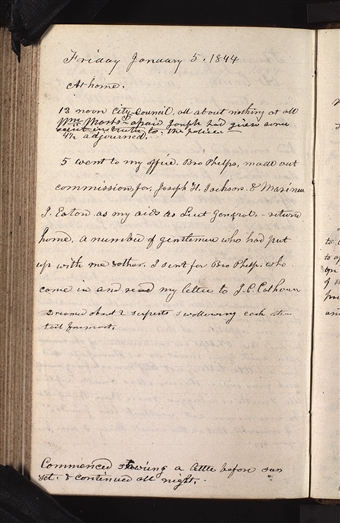 Friday January 5, 1844
At home.
12 noon City Council. all about nothing at all
Wm Marks afraid Joseph had given some
secret instructions to the police
4½ adjourned.
5 went to my office. Bro Phelps, made out
commissions for, Joseph H. Jackson & Marinus
G. Eaton as my aids as Lieut General. - returned
home, a number of gentlemen who had put
up with me & other. I sent for Bro Phelps. who
came in and read my letter to J. C. Calhoun
Dreamed about 2 serpents swallowing each other
tail foremost.
Commenced snowing a little before sun
set. & continued all night.